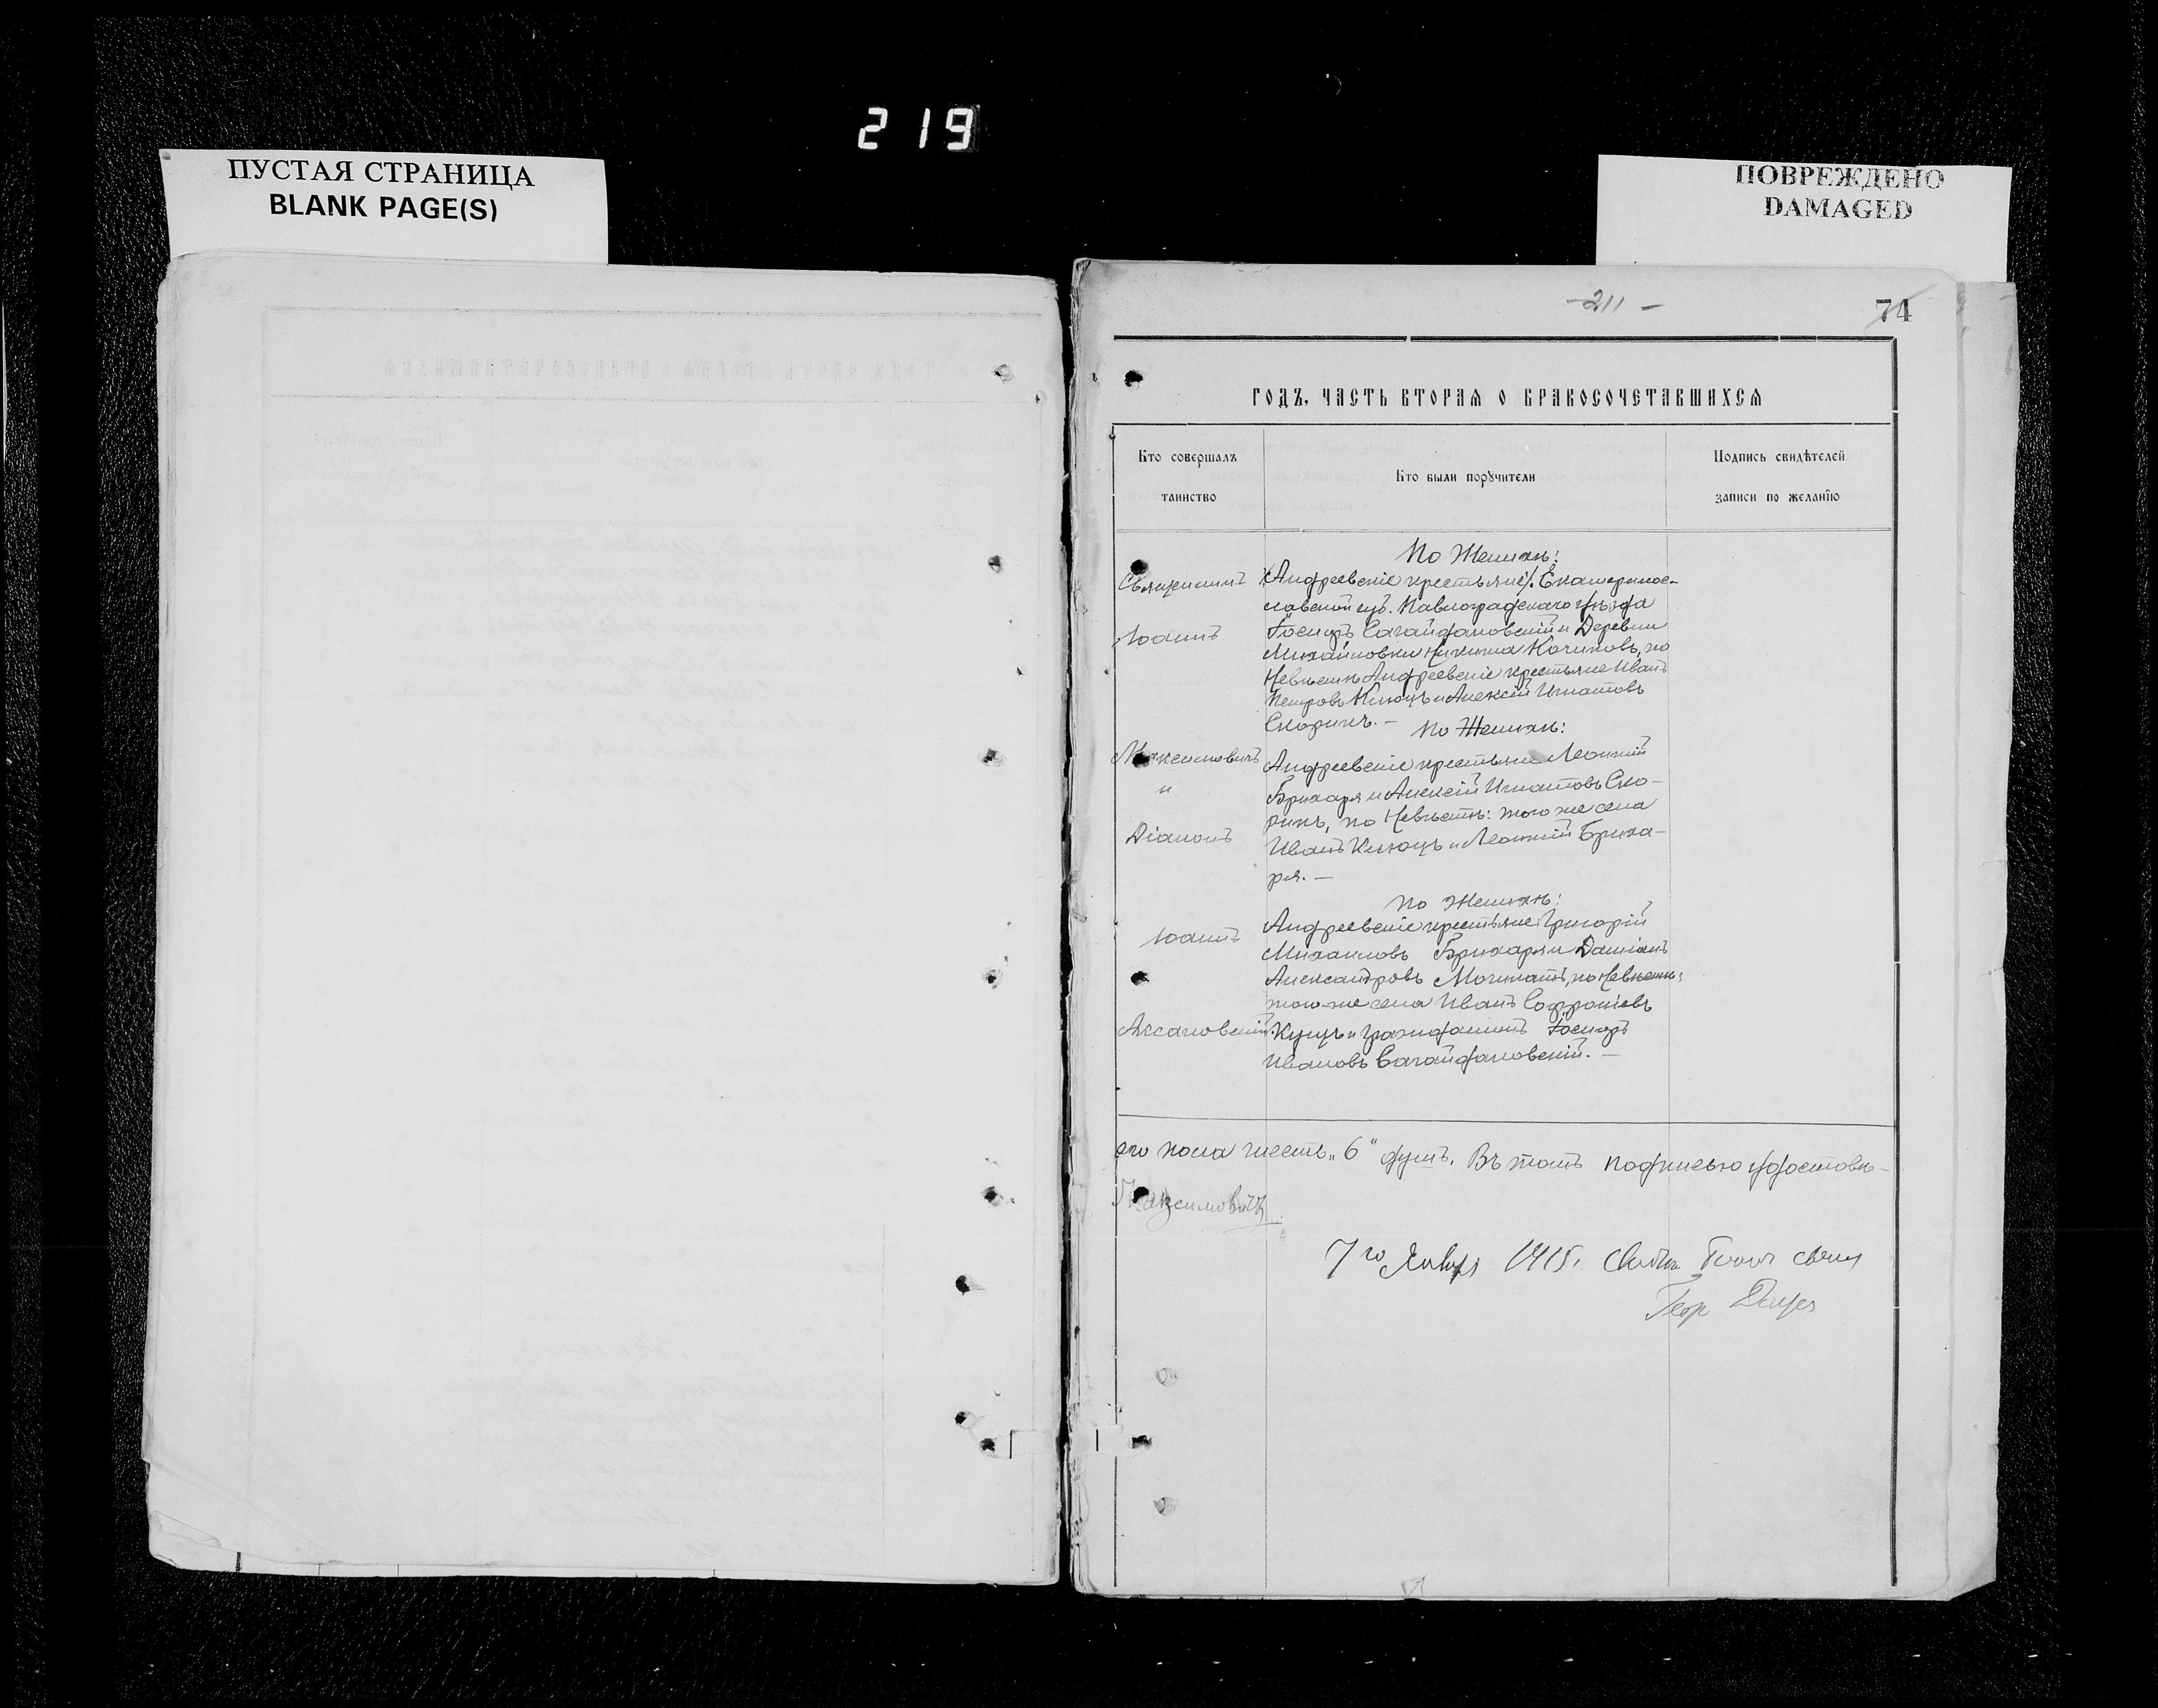 219
ПУСТАЯ СТРАНИЦА
BLANK PAGE(S)
ПОВРЕЖДЕНО
DAMAGED
-211-
74
ГОДЪ, ЧАСТЬ ВТОРАЯ О БРАКОСОЧЕТАВШИХСЯ
Кто совершалъ
таинство
Кто были поручители
Подпись свидѣтелей
записи по желанію
По Женихѣ:
Священникъ
Андреевскіе крестьяне Екатеринос-
лавской губ. Павлоградскаго уѣзда
Іоаннъ
Іосифъ Сагайдаковскій и Деревни
Михайловки Никита Кочиковъ, по
Невѣстѣ Андреевскіе крестьяне Иванъ
Петровъ Клюцъ и Алексій Игнатовъ
Скорикъ. —
По Женихѣ:
Максимовичъ
Андреевскіе крестьяне Леонтій
и
Брихаря и Алексій Игнатовъ Ско-
рикъ, по Невѣстѣ: того же села
Діаконъ
Иванъ Клюцъ и Леонтій Бриха-
ря. —
По Женихѣ:
Андреевскіе крестьяне Григорій
Іоаннъ
Михаиловъ Брихаря и Даміанъ
Александровъ Мочикатъ, по Невѣстѣ:
того-же села Иванъ Софроніевъ
Аксаковскій.
Куцъ и гражданинъ Іосифъ
Ивановъ Сагайдаковскій. —
его пола шесть „6" душъ. Въ томъ подписью удостовѣ-
Максимовичъ
7го 1915.